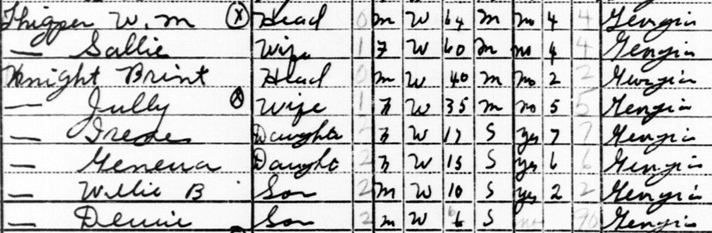 Thigpen W. M (X) Head 0 M W 64 M no 4 4 Georgia
— Sallie Wife 1 F W 60 M no 4 4 Georgia
Knight Brint Head 0 M W 40 M no 2 2 Georgia
— Jully (X) Wife 1 F W 35 M no 5 5 Georgia
— Irede Daughter 2 F W 17 S yes 7 7 Georgia
— Geneva Daughter 2 F W 15 S yes 6 6 Georgia
— Willie B Son 2 M W 10 S yes 2 2 Georgia
— Son 2 M W 6 S no Georgia